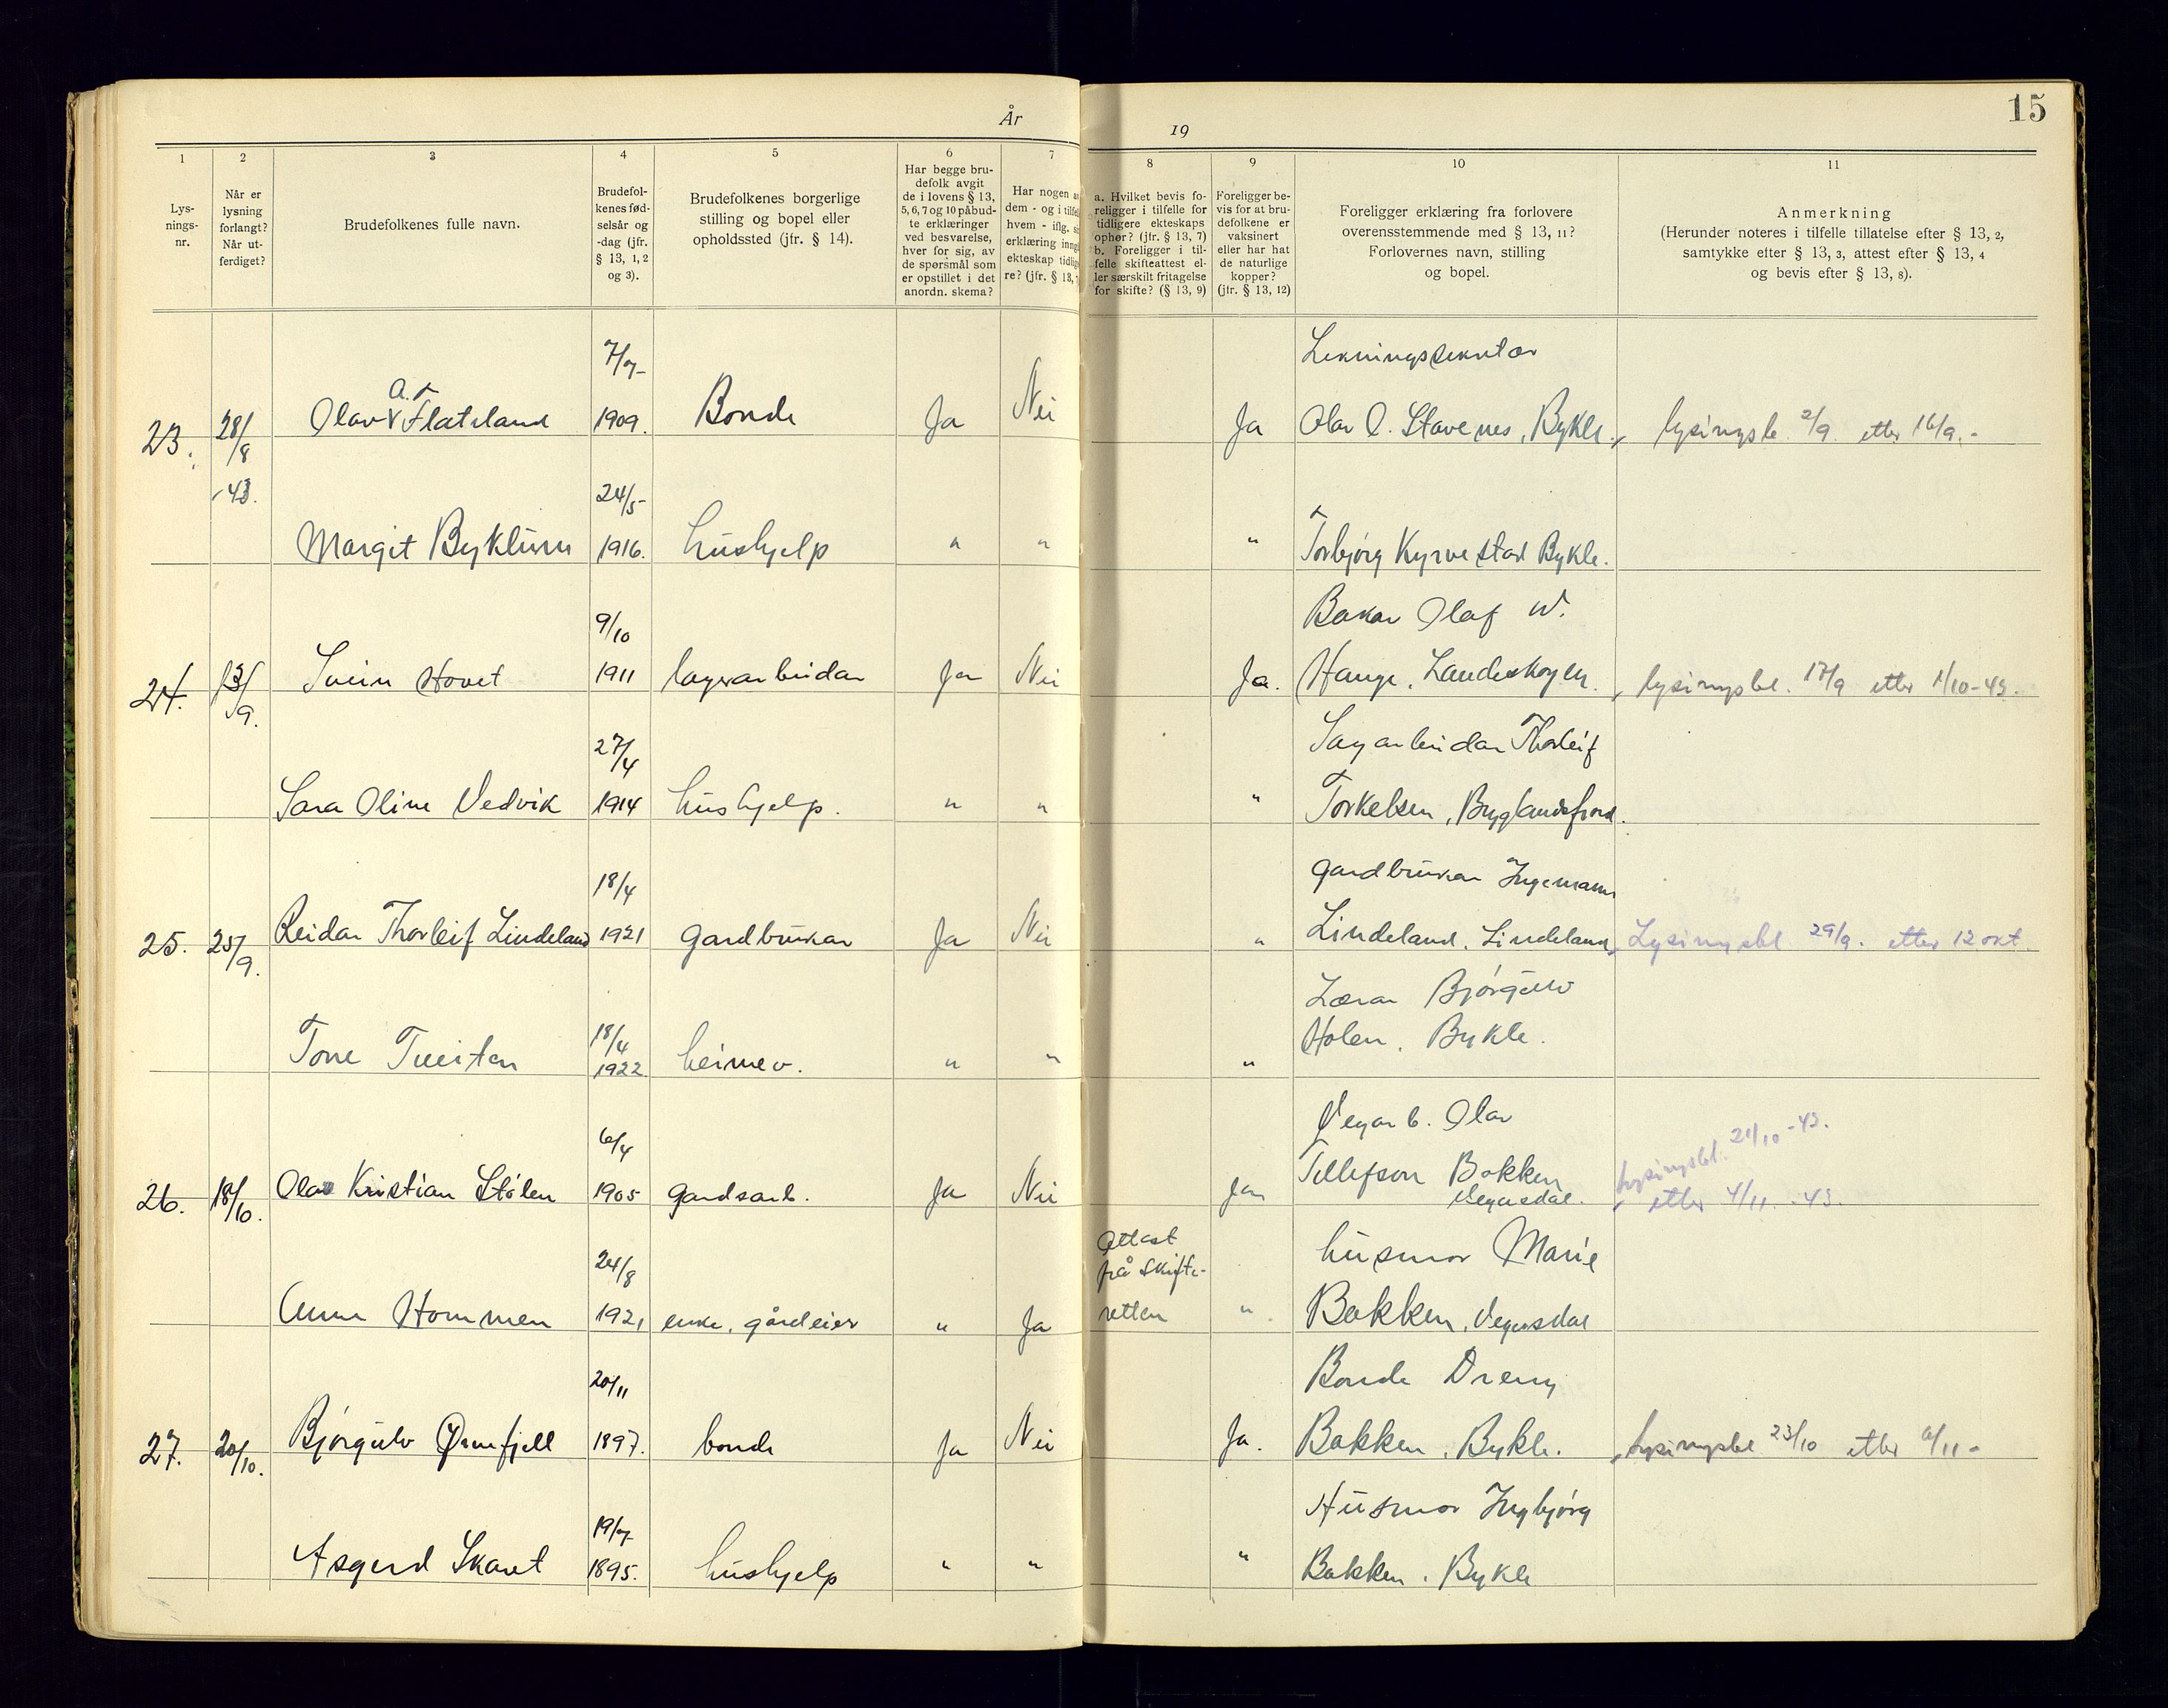 År
19
15
1
2
3
4
5
6
7
8
9
10
11
Lys-
nings-
nr.
Når er
lysning
forlangt?
Når ut-
ferdiget?
Brudefolkenes fulle navn.
Brudefol-
kenes fød-
selsår og
-dag (jfr.
§ 13, 1, 2
og 3).
Brudefolkenes borgerlige
stilling og bopel eller
opholdssted (jfr. § 14).
Har begge bru-
defolk avgit
de i lovens § 13,
5, 6, 7 og 10 påbud-
te erklæringer
ved besvarelse,
hver for sig, av
de spørsmål som
er opstillet i det
anordn. skema?
Har nogen
dem - og i tilfel
hvem - iflg.
erklæring inng
ekteskap tidlig
re? (jfr. § 13,
a. Hvilket bevis fo-
religger i tilfelle for
tidligere ekteskaps
ophør? (jfr. § 13, 7)
b. Foreligger i til-
felle skifteattest el-
ler særskilt fritagelse
for skifte? (§ 13, 9)
Foreligger be-
vis for at bru-
defolkene er
vaksinert
eller har hat
de naturlige
kopper?
(jfr. § 13, 12)
Foreligger erklæring fra forlovere
overensstemmende med § 13, 11?
Forlovernes navn, stilling
og bopel.
Anmerkning
(Herunder noteres i tilfelle tillatelse efter § 13, 2,
samtykke efter § 13, 3, attest efter § 13, 4
og bevis efter § 13, 8).
7/7-
A. T
23. 28/8 Olav Flateland 1909. Bonde Ja Nei Ja Olav O. Stavenes, Bykle. lysingsbl. 2/9. etter 16/9.-
-43.
24/5-
Margit Byklum 1916. hushjelp " " " Torbjørg Kyrvestad Bykle.
9/10 Bakar Olaf W.
24. 13/9. Svein Hovet 1911 lagerarbeidar Ja Nei Ja. Hauge, Landeskogen. lysingsbl. 17/9 etter 1/10-43.
27/4 Sagarbeidar Thorleif
Sara Oline Vedvik 1914 hushjelp. " " " Torkelsen, Byglandsfjord.
18/4 gardbrukar Ingemann
25. 25/9. Reidar Thorleif Lindeland 1921 gardbrukar Ja Nei " Lindeland, Lindeland, Lysingsbl. 29/9. etter 12 okt.
18/4 Lærar Bjørgulv
Tone Tveiten 1922 heimev. " " " Holen, Bykle.
6/4 Vegarb. Olav
26. 18/10. Olav Kristian Stølen 1905 gardsarb. Ja Nei Ja Tellefson Bakken
Vegusdal.
lysingsbl. 21/10-43.
etter 4/11.-43.
24/8 Attest
frå skifte- husmor Marie
Anna Hommen 1921 enke, gårdeier " Ja retten " Bakken, Vegusdal
20/11 Bonde Dreng
27. 20/10. Bjørgulv Ørnefjell 1897. bonde Ja Nei Ja. Bakken, Bykle. lysingsbl 23/10 etter 6/11-
19/7- Husmor Ingbjørg
Asgerd Skaret 1895. hushjelp " " " Bakken, Bykle